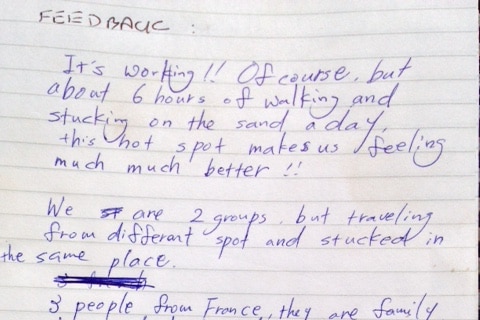 FEEDBACK :
It's working!! Of course, but
about 6 hours of walking and
stucking on the sand a day,
this hot spot makes us feeling
much much better !!
We are 2 groups, but traveling
from different spot and stucked in
the same place.
3 people from France, they are family